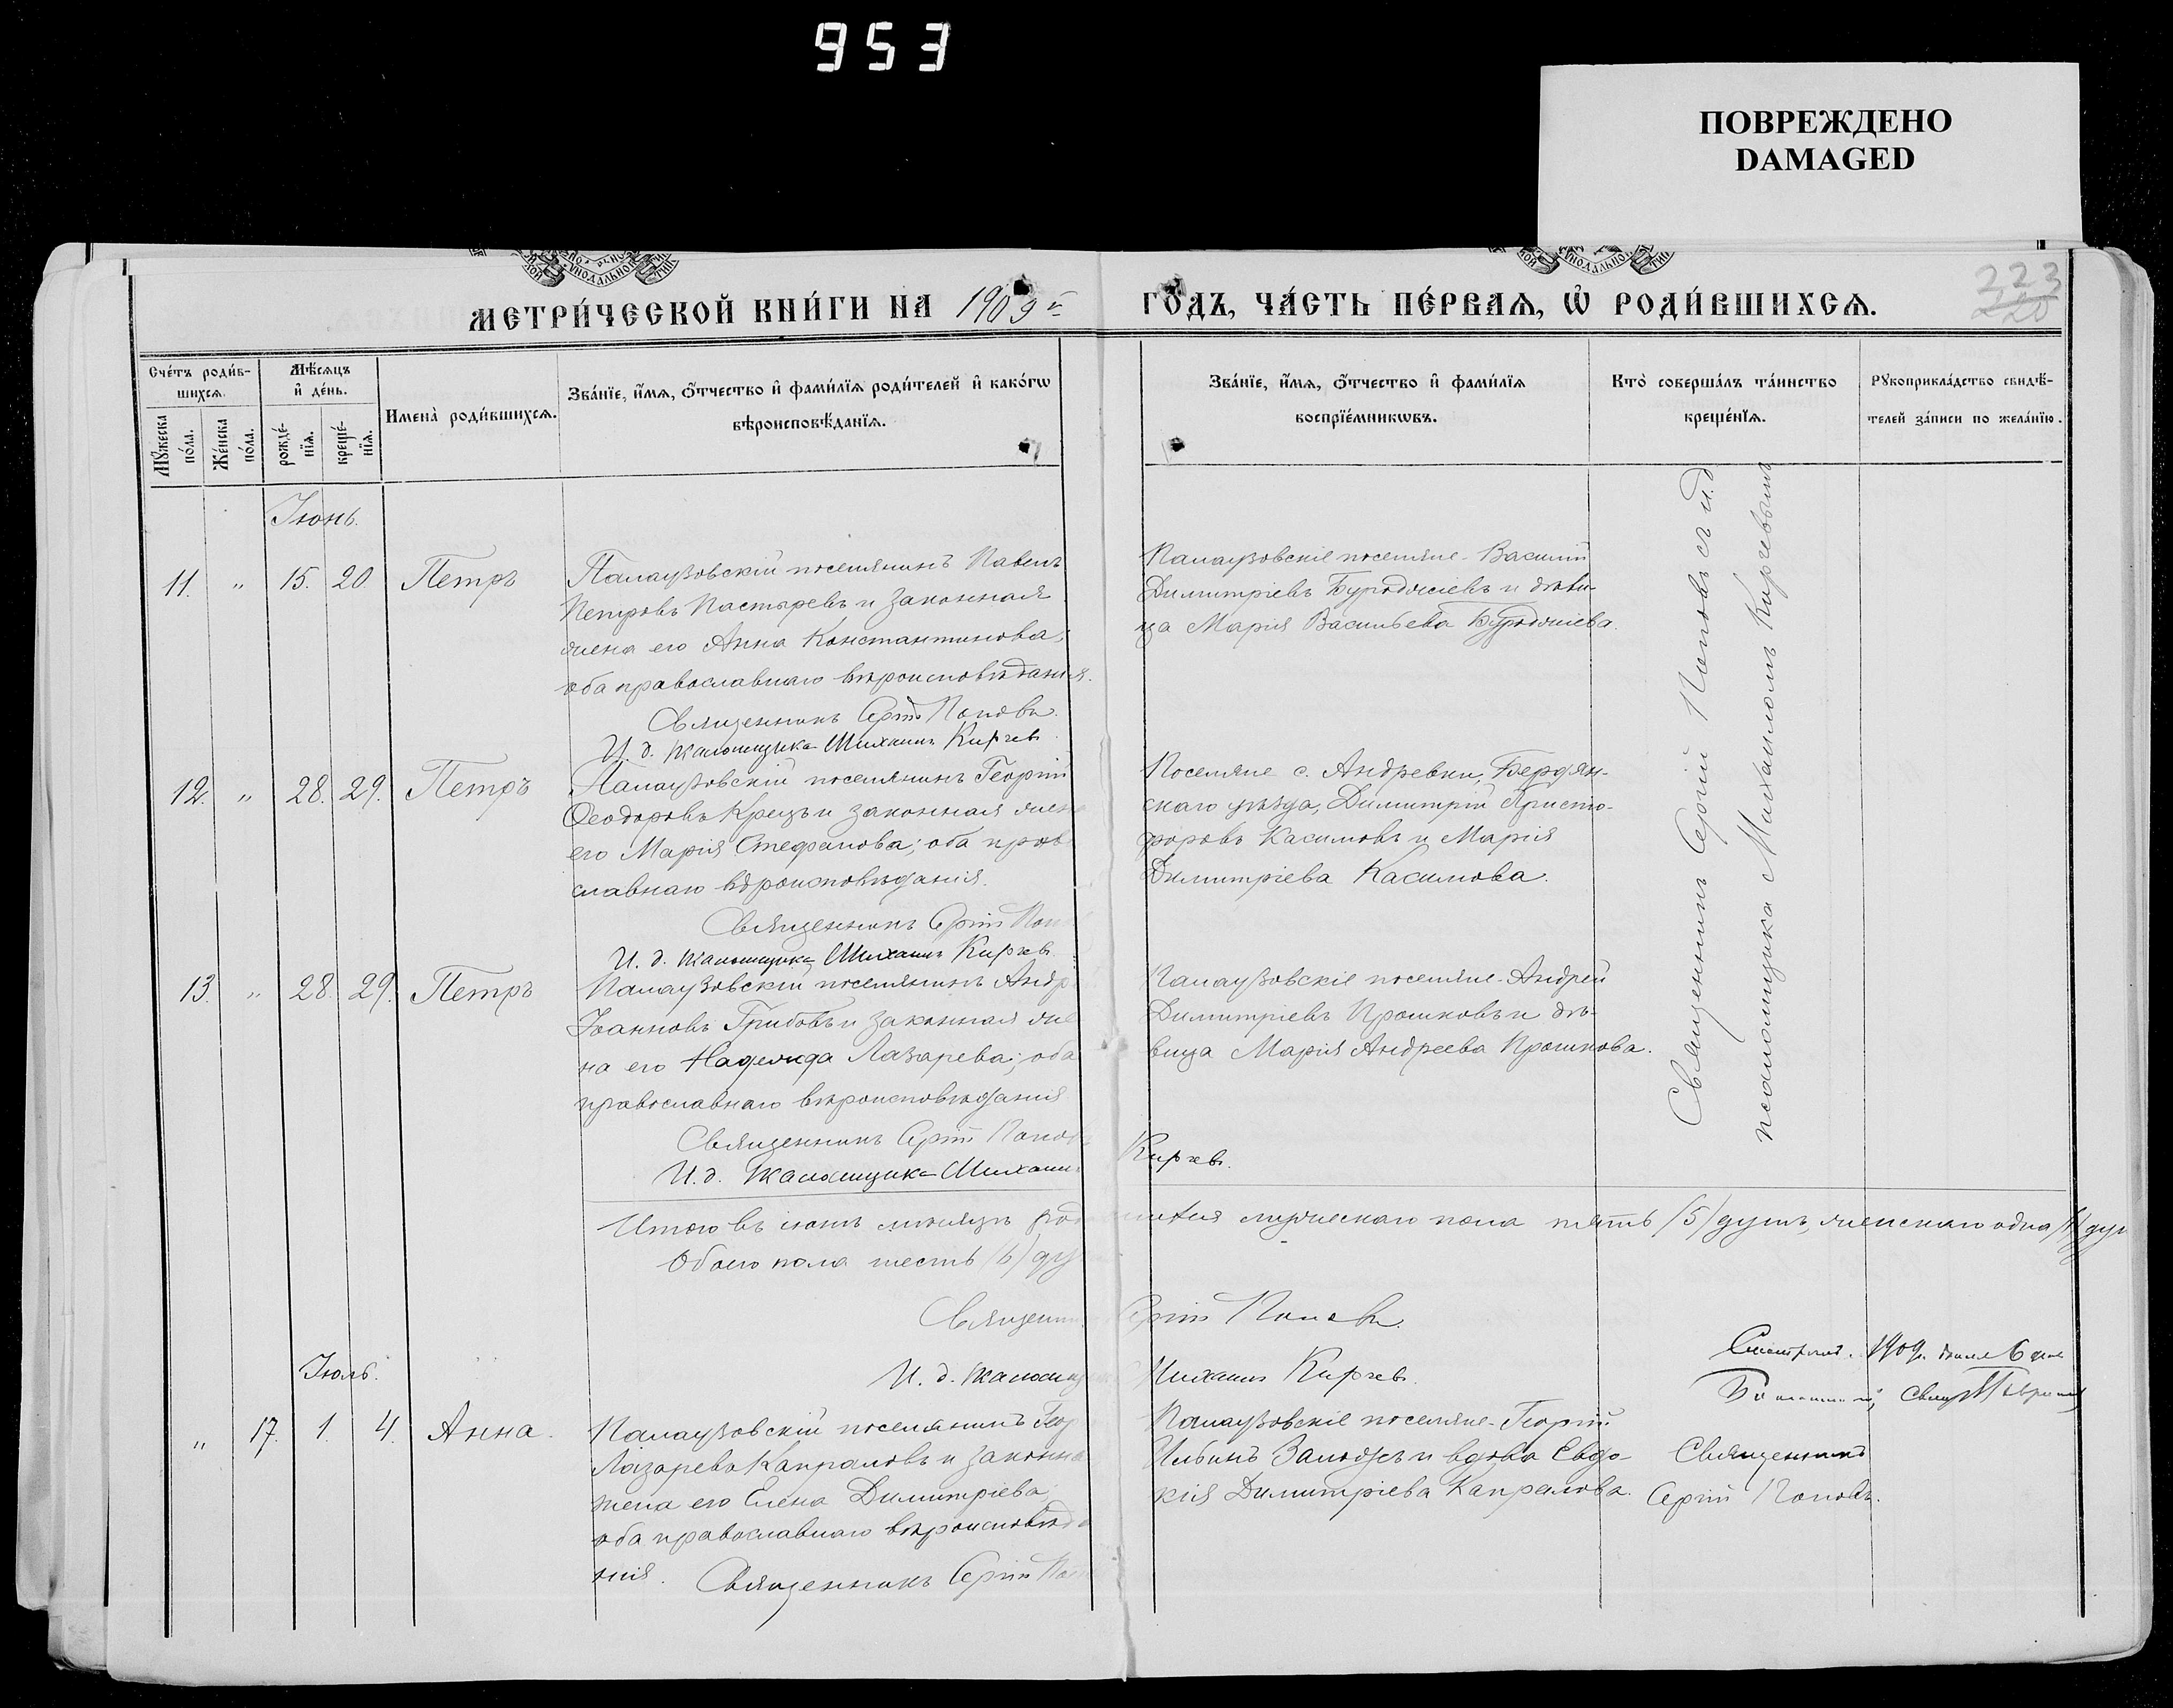 953
ПОВРЕЖДЕНО
DAMAGED
МЕТРИ́ЧЕСКОЙ КНИ́ГИ НА 1909й ГО́ДЪ, ЧА́СТЬ ПЕ́РВАѦ, Ѡ РОДИ́ВШИХСѦ.
223
220
Счéтъ роди́в-
шихсѧ.
Мꙋ́жеска
пóла.
Жéнска
пóла.
Мѣ́сѧцъ
и҆ дéнь.
рождé-
нїѧ.
крещé-
нїѧ.
Именà роди́вшихсѧ.
Звáнїе, и҆́мѧ, ѻ҆́тчество и҆ фами́лїѧ роди́телей и҆ какóгѡ
вѣроисповѣ́данїѧ.
Звáнїе, и҆́мѧ, ѻ҆́тчество и҆ фами́лїѧ
воспрїéмникѡвъ.
Ктò совершáлъ тáинство
крещéнїѧ.
Рꙋкоприклáдство свидѣ́-
телей зáписи по желáнїю.
Іюнь.
11. " 15. 20. Петръ
Палаузовскій поселянинъ Павелъ
Петровъ Пастыревъ и законная
жена его Анна Константинова;
оба православнаго вѣроисповѣданія.
Священникъ Сергій Поповъ.
И. д. псаломщика Михаилъ Кирчевъ.
Палаузовскіе поселяне - Василій
Димитріевъ Бурдужіевъ и дѣви-
ца Марія Васильева
Священникъ Сергій Поповъ съ и. д.
псаломщика Михаиломъ Кирчевымъ
12. " 28. 29. Петръ
Палаузовскій поселянинъ Георгій
Ѳеодоровъ Крецъ и законная жена
его Марія Стефанова; оба право
славнаго вѣроисповѣданія.
Священникъ Сергій Поп
И. д. псаломщика Михаилъ Кирчевъ.
Поселяне с. Андревки, Бердян-
скаго уѣзда, Димитрій Христо-
форовъ Касимовъ и Марія
Димитріева Касимова.
13. " 28. 29. Петръ
Палаузовскій поселянинъ Андр
Іоанновъ Грибовъ и законная же
на его Надежда Лазарева; оба
православнаго вѣроисповѣданія
Священникъ Сергій Попов
И. д. псаломщика Михаил Кирчевъ.
Палаузовскіе поселяне - Андрей
Димитріевъ Крошковъ и дѣ-
вица Марія Андреева Крошкова.
Итого въ іюнѣ мѣсяцѣ род шихся мужескаго пола пять /5/ душъ, женскаго одна /1/ душ
Обоего пола шесть /6/ ду
Священни Сергій Поповъ.
И. д. псаломщ Михаилъ Кирчевъ.
1909. 6
Іюль.
" 17. 1. 4. Анна.
Палаузовскій поселянинъ Геор
Лазаревъ Капраловъ и законна
жена его Елена Димитріева;
оба православнаго вѣроисповѣда
нія. Священникъ Сергій По
Палаузовскіе поселяне - Георгій
Ильинъ и вдова Евдо-
кія Димитріева Капралова.
Священникъ
Сергій Поповъ.